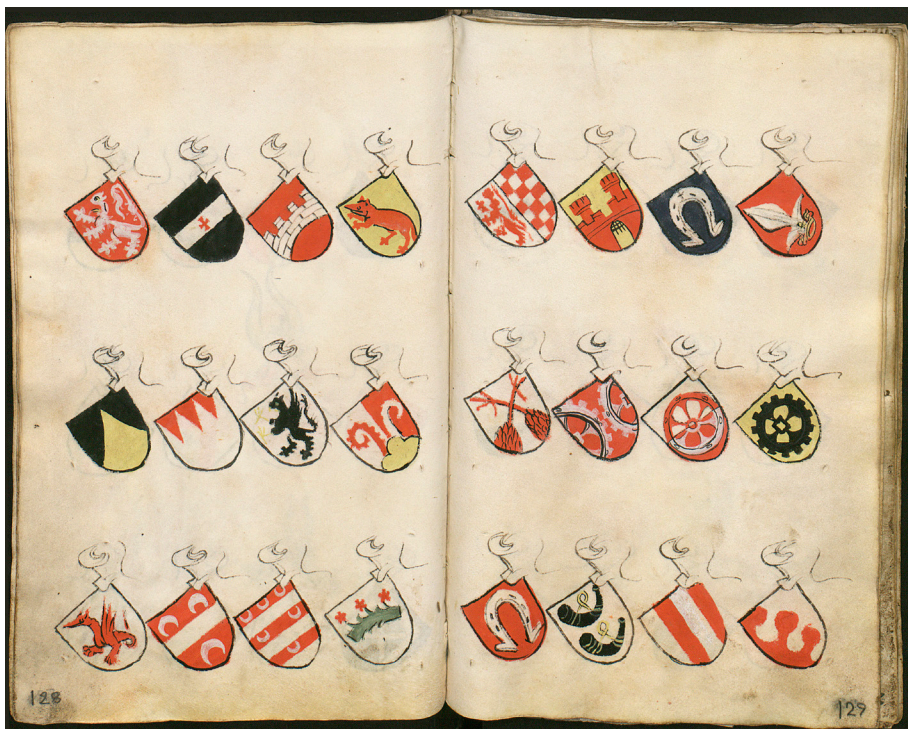 128
129